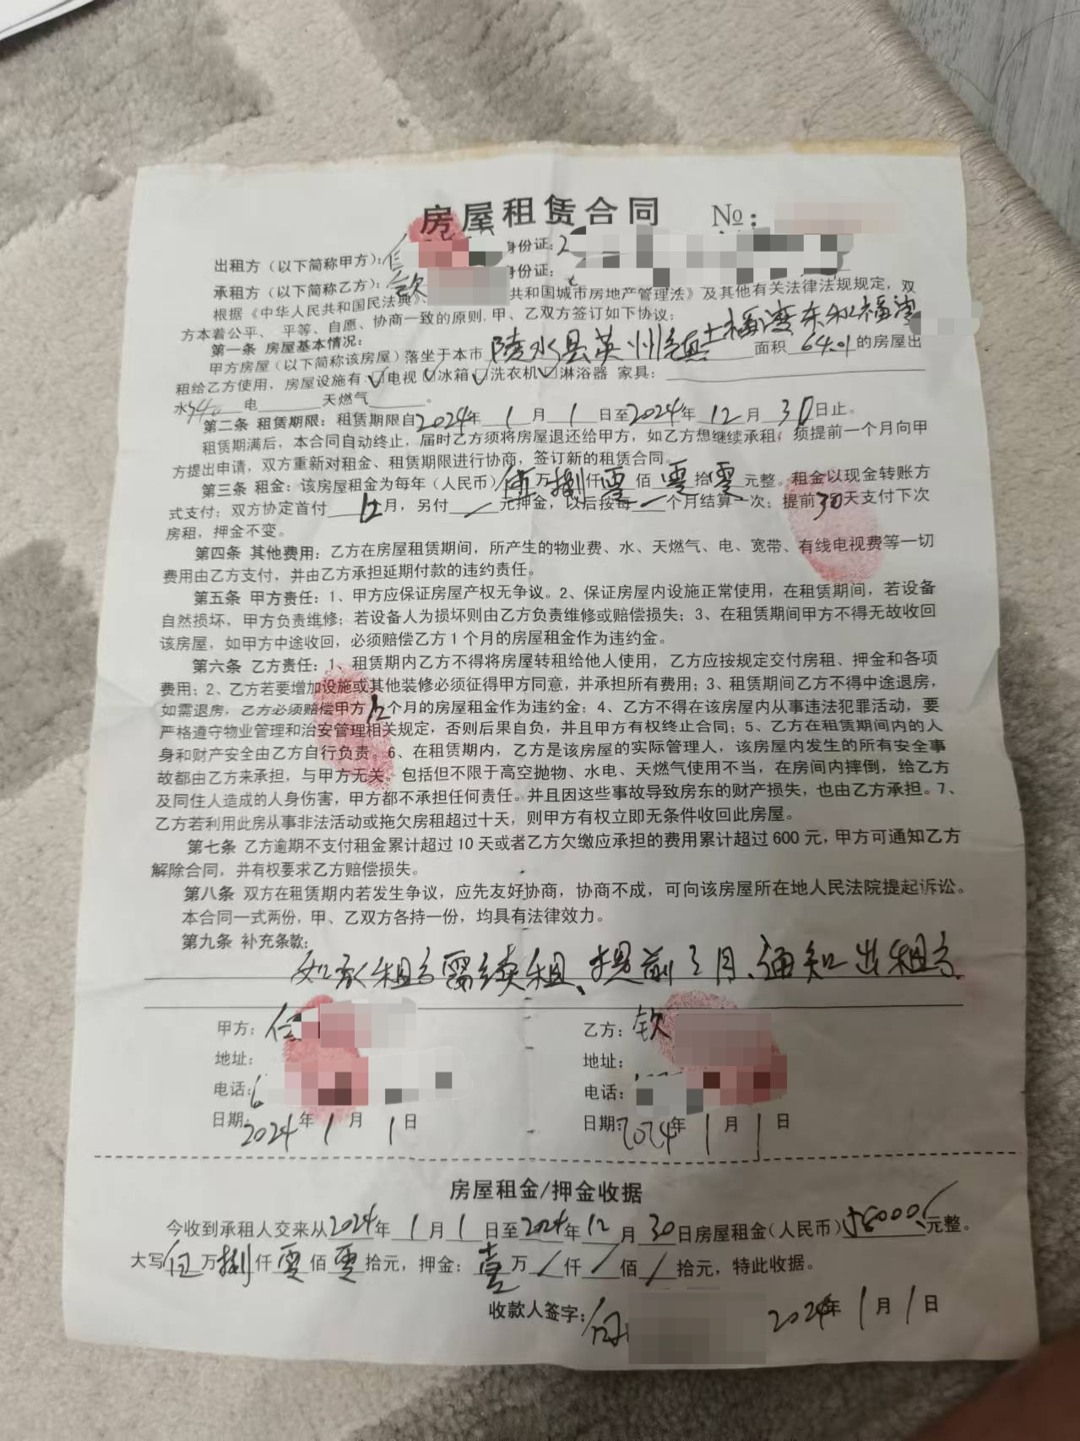 房屋租赁合同 №:
出租方（以下简称甲方）: 身份证:2
承租方（以下简称乙方）:钦 身份证:
根据《中华人民共和国民法典》 共和国城市房地产管理法》及其他有关法律法规规定，双
方本着公平、平等、自愿、协商一致的原则.甲、乙双方签订如下协议：
第一条 房屋基本情况：
甲方房屋（以下简称该房屋）落坐于本市 陵水县英州镇 土福湾东和福湾 面积 64.01 的房屋出
租给乙方使用，房屋设施有:☑电视☑冰箱☑洗衣机☑淋浴器 家具：
水 电 天燃气 。
第二条 租赁期限：租赁期限自2024年 1 月 1 日至2024年 12 月 30日止。
租赁期满后，本合同自动终止，届时乙方须将房屋退还给甲方，如乙方想继续承租，须提前一个月向甲
方提出申请，双方重新对租金、租赁期限进行协商，签订新的租赁合同。
第三条 租金：该房屋租金为每年（人民币）伍万捌仟零佰零拾零元整。租金以现金转账方
式支付；双方协定首付 月，另付 / 元押金，以后按每 个月结算一次；提前30天支付下次
房租，押金不变。
第四条 其他费用：乙方在房屋租赁期间，所产生的物业费、水、天燃气、电、宽带、有线电视费等一切
费用由乙方支付，并由乙方承担延期付款的违约责任。
第五条 甲方责任：1、甲方应保证房屋产权无争议。2、保证房屋内设施正常使用，在租赁期间，若设备
自然损坏，甲方负责维修；若设备人为损坏则由乙方负责维修或赔偿损失；3、在租赁期间甲方不得无故收回
该房屋，如甲方中途收回，必须赔偿乙方1个月的房屋租金作为违约金。
第六条 乙方责任：1、租赁期内乙方不得将房屋转租给他人使用，乙方应按规定交付房租、押金和各项
费用；2、乙方若要增加设施或其他装修必须征得甲方同意，并承担所有费用；3、租赁期间乙方不得中途退房，
如需退房，乙方必须赔偿甲方 个月的房屋租金作为违约金；4、乙方不得在该房屋内从事违法犯罪活动，要
严格遵守物业管理和治安管理相关规定，否则后果自负，并且甲方有权终止合同；5、乙方在租赁期间内的人
身和财产安全由乙方自行负责。6、在租赁期内，乙方是该房屋的实际管理人，该房屋内发生的所有安全事
故都由乙方来承担，与甲方无关。包括但不限于高空抛物、水电、天燃气使用不当，在房间内摔倒，给乙方
及同住人造成的人身伤害，甲方都不承担任何责任。并且因这些事故导致房东的财产损失，也由乙方承担。7、
乙方若利用此房从事非法活动或拖欠房租超过十天，则甲方有权立即无条件收回此房屋。
第七条 乙方逾期不支付租金累计超过10天或者乙方欠缴应承担的费用累计超过600元，甲方可通知乙方
解除合同，并有权要求乙方赔偿损失。
第八条 双方在租赁期内若发生争议，应先友好协商，协商不成，可向该房屋所在地人民法院提起诉讼。
本合同一式两份，甲、乙双方各持一份，均具有法律效力。
第九条 补充条款：
如承租方需续租、提前3月、通知出租方
甲方： 乙方：钦
地址： 地址：
电话： 电话：
日期：2024年 1 月 1日 日期：2024年 1 月 1 日
房屋租金/押金收据
今收到承租人交来从2024年 1 月 1 日至2024年 12 月 30日房屋租金（人民币）58000元整。
大写伍万捌仟零佰零拾元，押金：壹万 / 仟 / 佰 / 拾元，特此收据。
收款人签字： 2024年 1月 1日